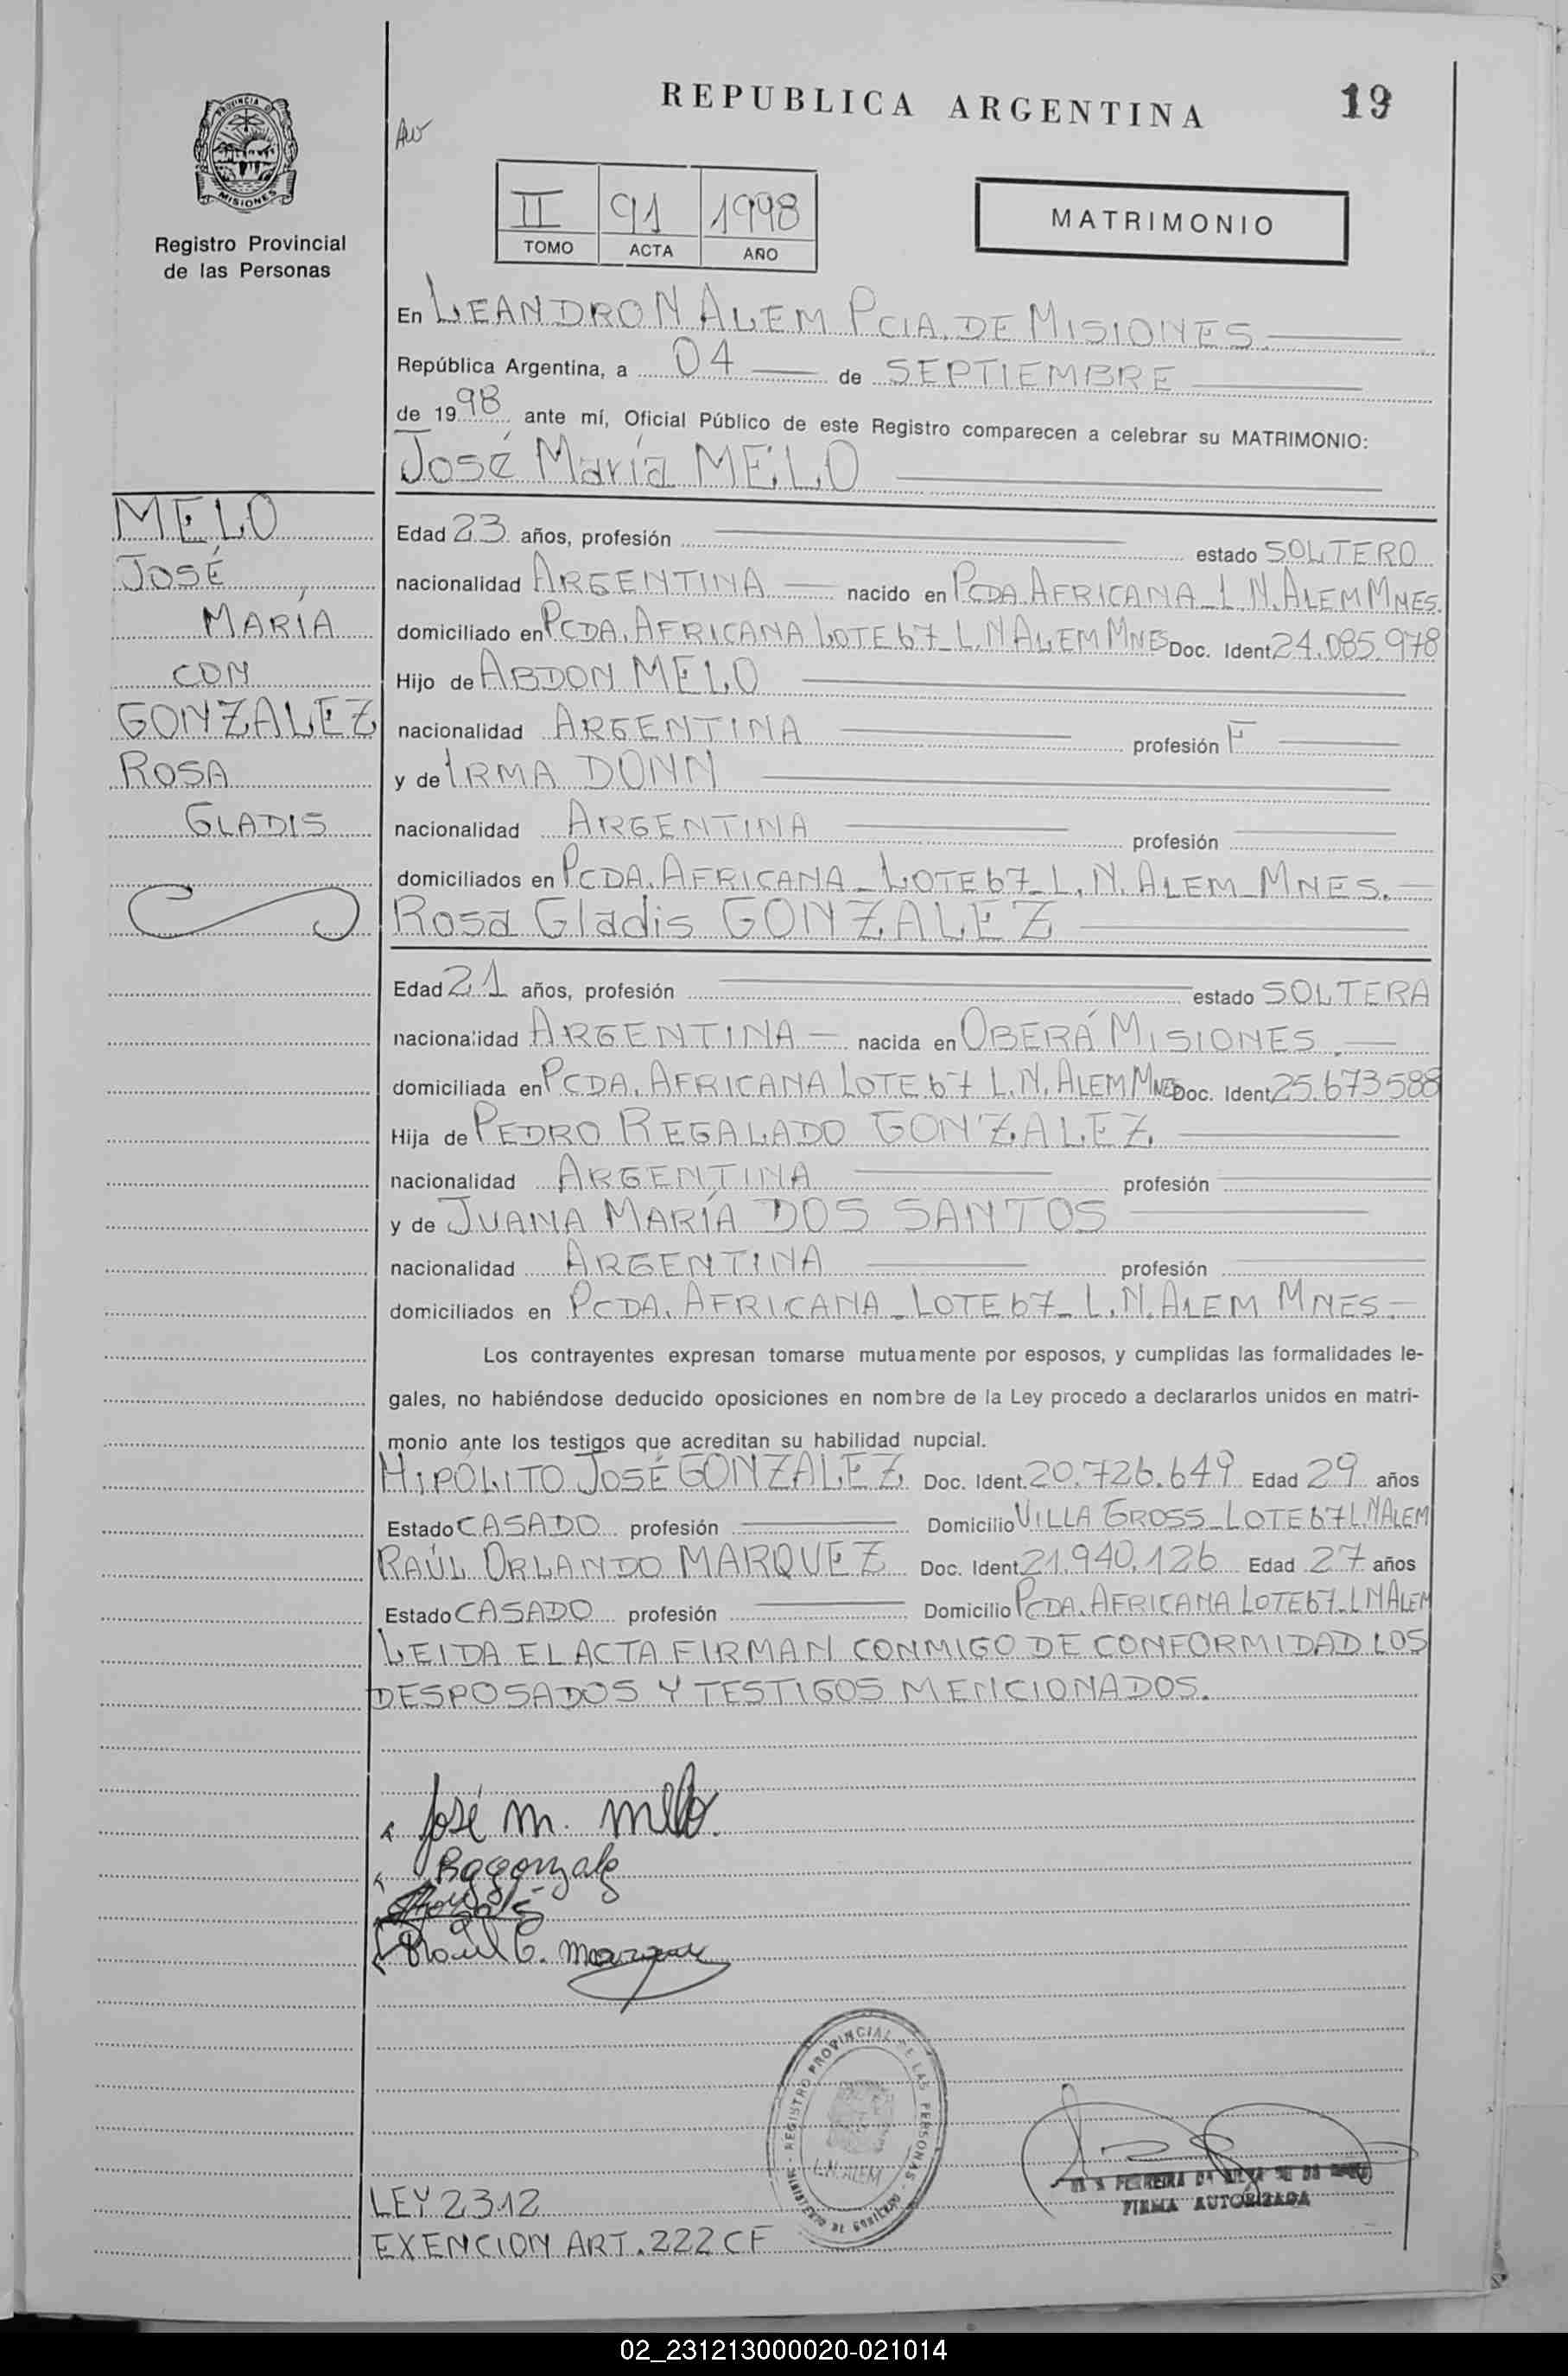 REPUBLICA ARGENTINA
19
PROVINCIA DE
MISIONES
Registro Provincial
de las Personas
II 91 1998
TOMO ACTA AÑO
MATRIMONIO
En LEANDRO N ALEM PCIA. DE MISIONES.
República Argentina, a 04 de SEPTIEMBRE
de 1998 ante mí, Oficial Público de este Registro comparecen a celebrar su MATRIMONIO:
José María MELO
MELO
JOSÉ
MARÍA
CON
GONZALEZ
ROSA
GLADIS
Edad 23 años, profesión estado SOLTERO
nacionalidad ARGENTINA nacido en PCDA AFRICANA_L N. ALEM MNES.
domiciliado en PCDA. AFRICANA LOTE 67_L.N ALEM MNES Doc. Ident. 24.085.978
Hijo de ABDON MELO
nacionalidad ARGENTINA profesión F
y de IRMA DONN
nacionalidad ARGENTINA profesión
domiciliados en PCDA. AFRICANA_LOTE 67_L. N. ALEM_MNES.
Rosa Gladis GONZALEZ
Edad 21 años, profesión estado SOLTERA
nacionalidad ARGENTINA nacida en OBERÁ MISIONES.
domiciliada en PCDA. AFRICANA LOTE 67 L.N. ALEM MNES Doc. Ident. 25.673588
Hija de PEDRO REGALADO GONZALEZ
nacionalidad ARGENTINA profesión
y de JUANA MARÍA DOS SANTOS
nacionalidad ARGENTINA profesión
domiciliados en PCDA. AFRICANA_LOTE 67_L.N. ALEM MNES.
Los contrayentes expresan tomarse mutuamente por esposos, y cumplidas las formalidades le-
gales, no habiéndose deducido oposiciones en nombre de la Ley procedo a declararlos unidos en matri-
monio ante los testigos que acreditan su habilidad nupcial.
HIPÓLITO JOSÉ GONZALEZ Doc. Ident. 20.726.649 Edad 29 años
Estado CASADO profesión Domicilio VILLA GROSS_LOTE 67 L.N ALEM
RAÚL ORLANDO MARQUEZ Doc. Ident. 21.940.126 Edad 27 años
Estado CASADO profesión Domicilio PCDA. AFRICANA LOTE 67_L N ALEM
LEIDA EL ACTA FIRMAN CONMIGO DE CONFORMIDAD LOS
DESPOSADOS Y TESTIGOS MENCIONADOS.
José m. melo.
REGISTRO PROVINCIAL DE LAS PERSONAS
L.N. ALEM
FERREIRA
FIRMA AUTORIZADA
LEY 2312
EXENCION ART. 222 CF
02_231213000020-021014